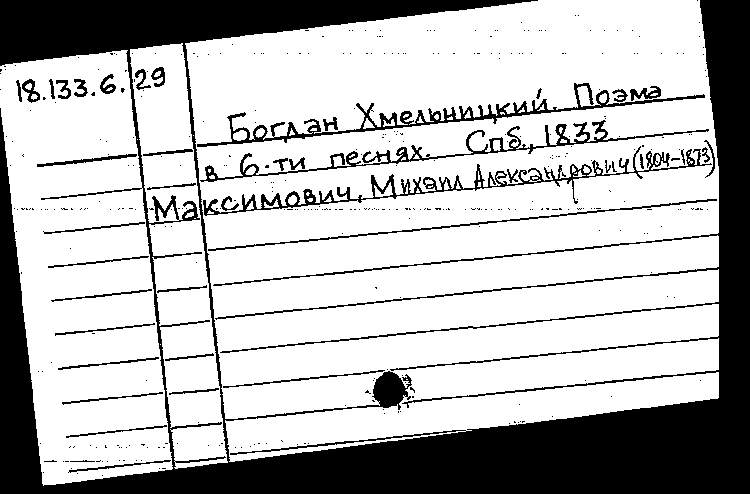 18.133.6.29
Богдан Хмельницкий. Поэма
в 6-ти песнях. Спб., 1833
Максимович, Михаил Александрович (1804-1873)